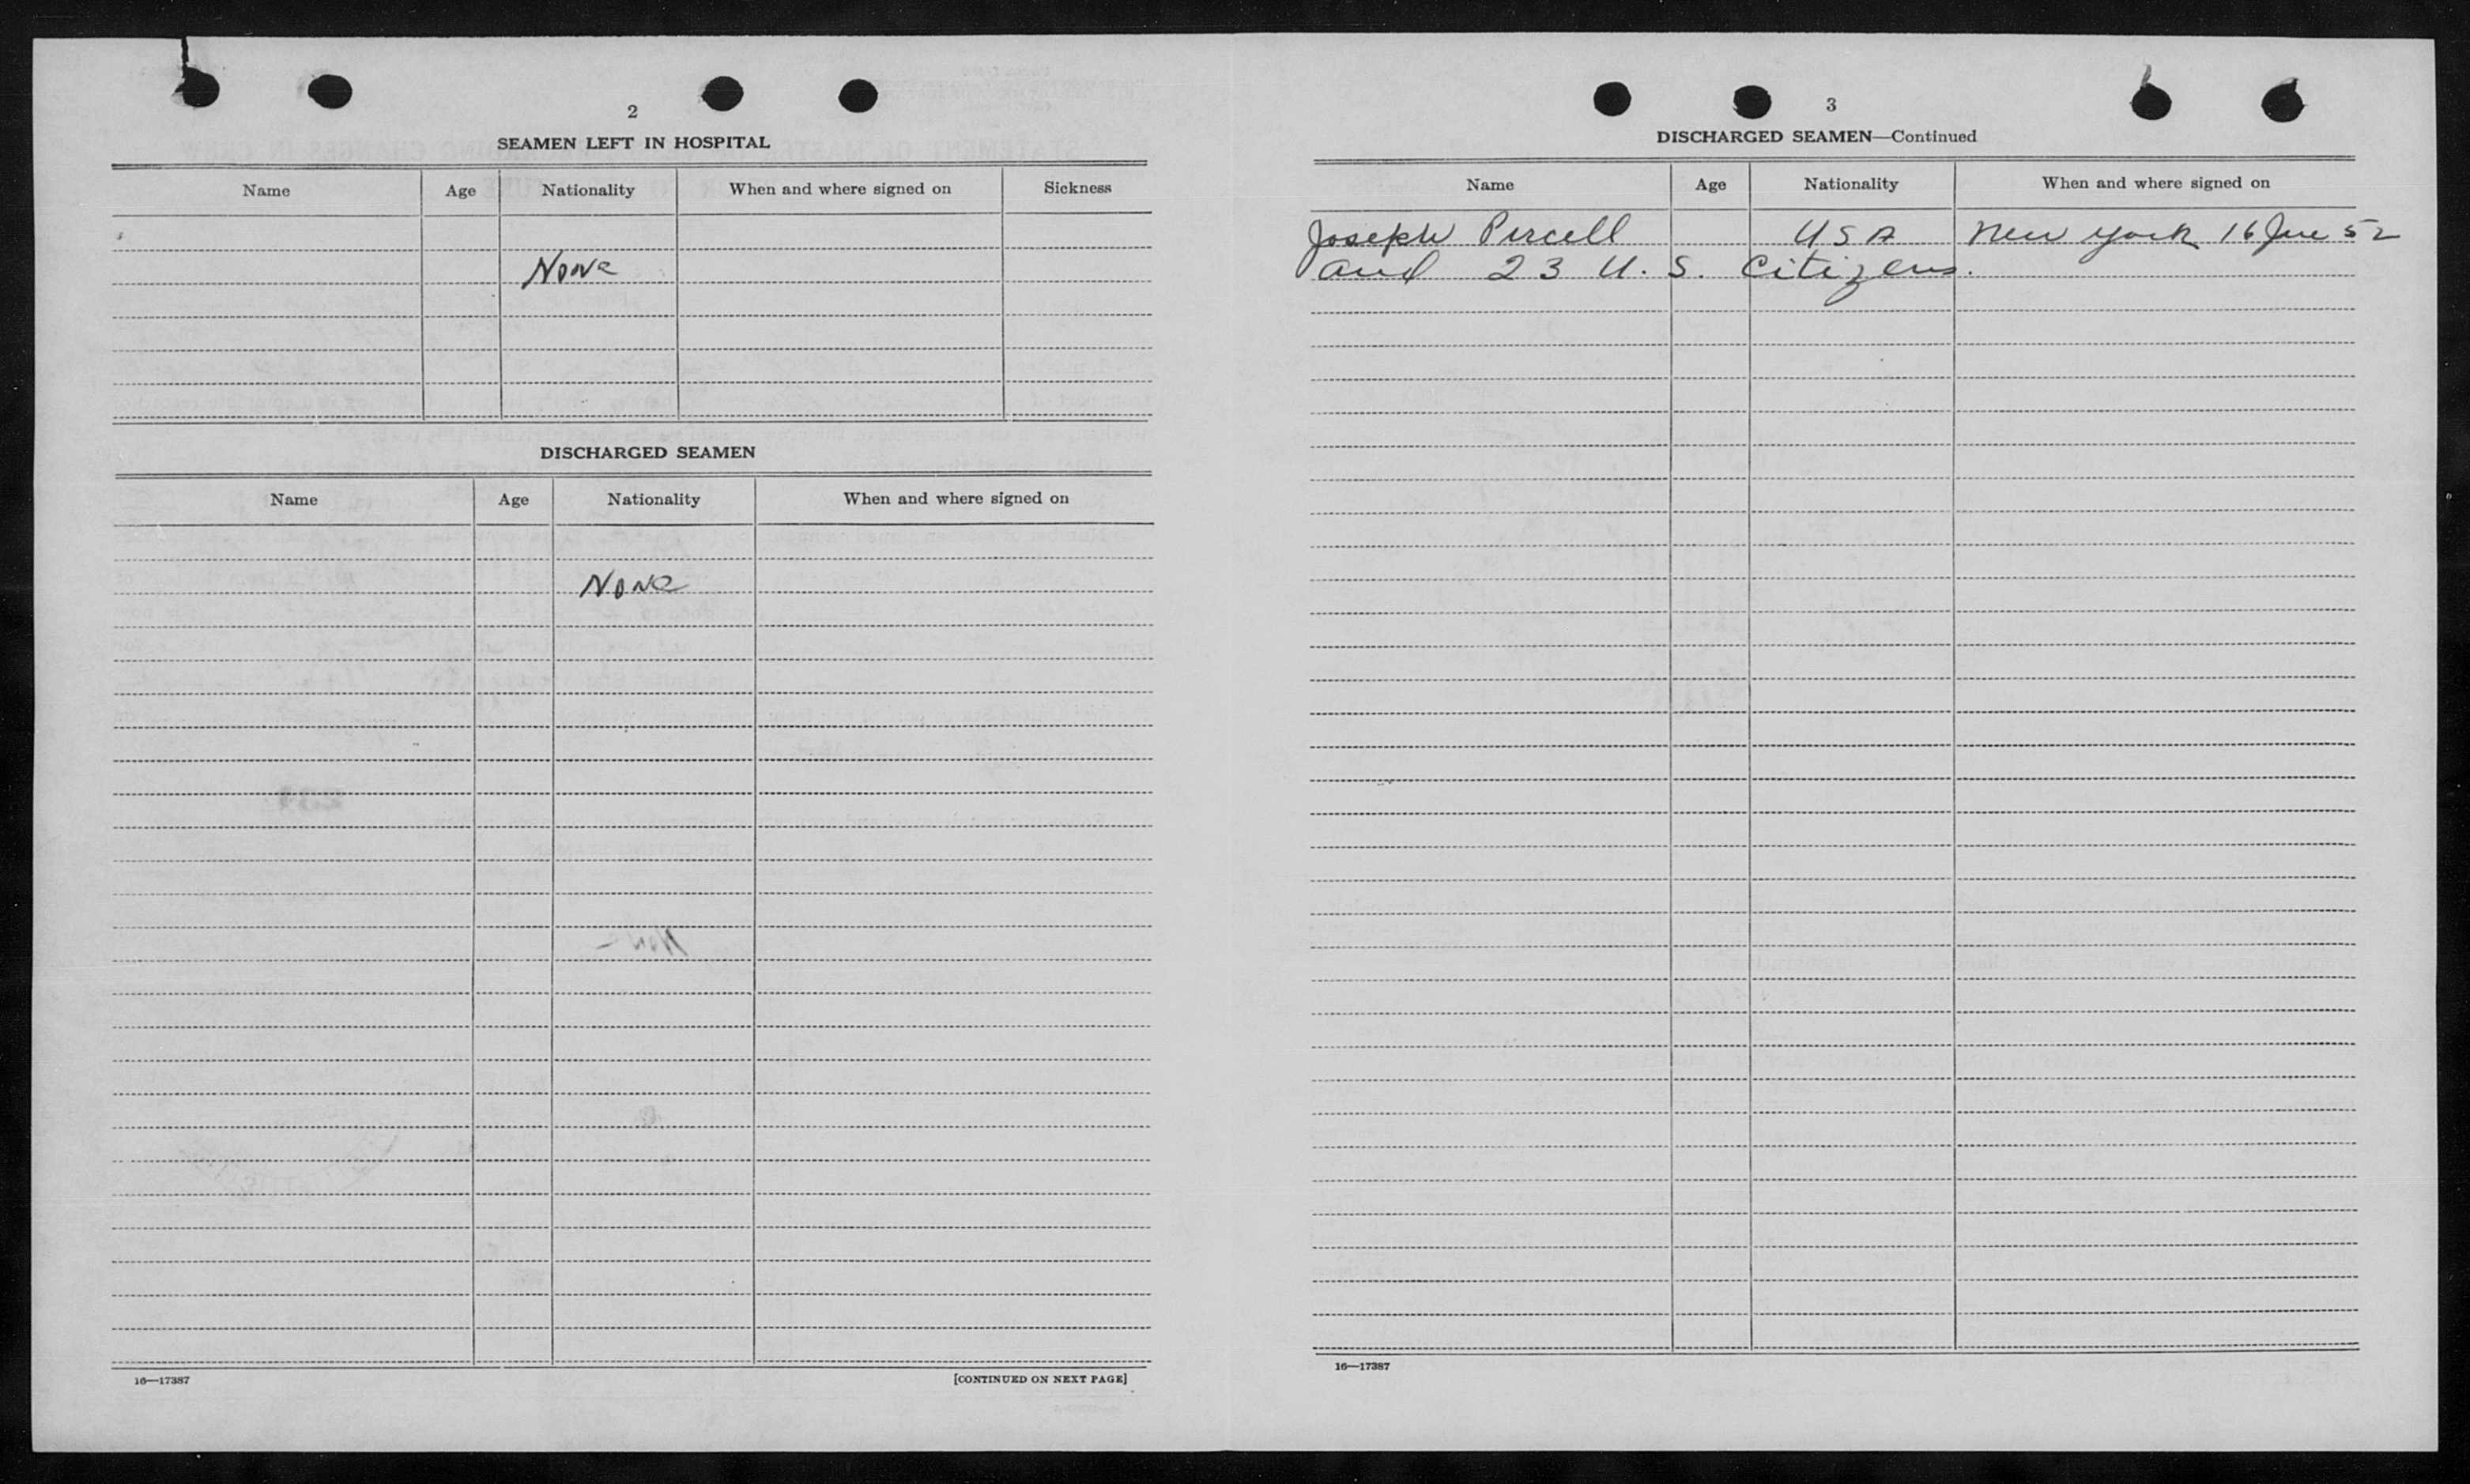 2
SEAMEN LEFT IN HOSPITAL
Name Age Nationality When and where signed on Sickness
None
DISCHARGED SEAMEN
Name Age Nationality When and where signed on
None
16—17387 [CONTINUED ON NEXT PAGE]
3
DISCHARGED SEAMEN—Continued
Name Age Nationality When and where signed on
Joseph Purcell USA New York 16 52
and 23 U.S. Citizens.
16—17387